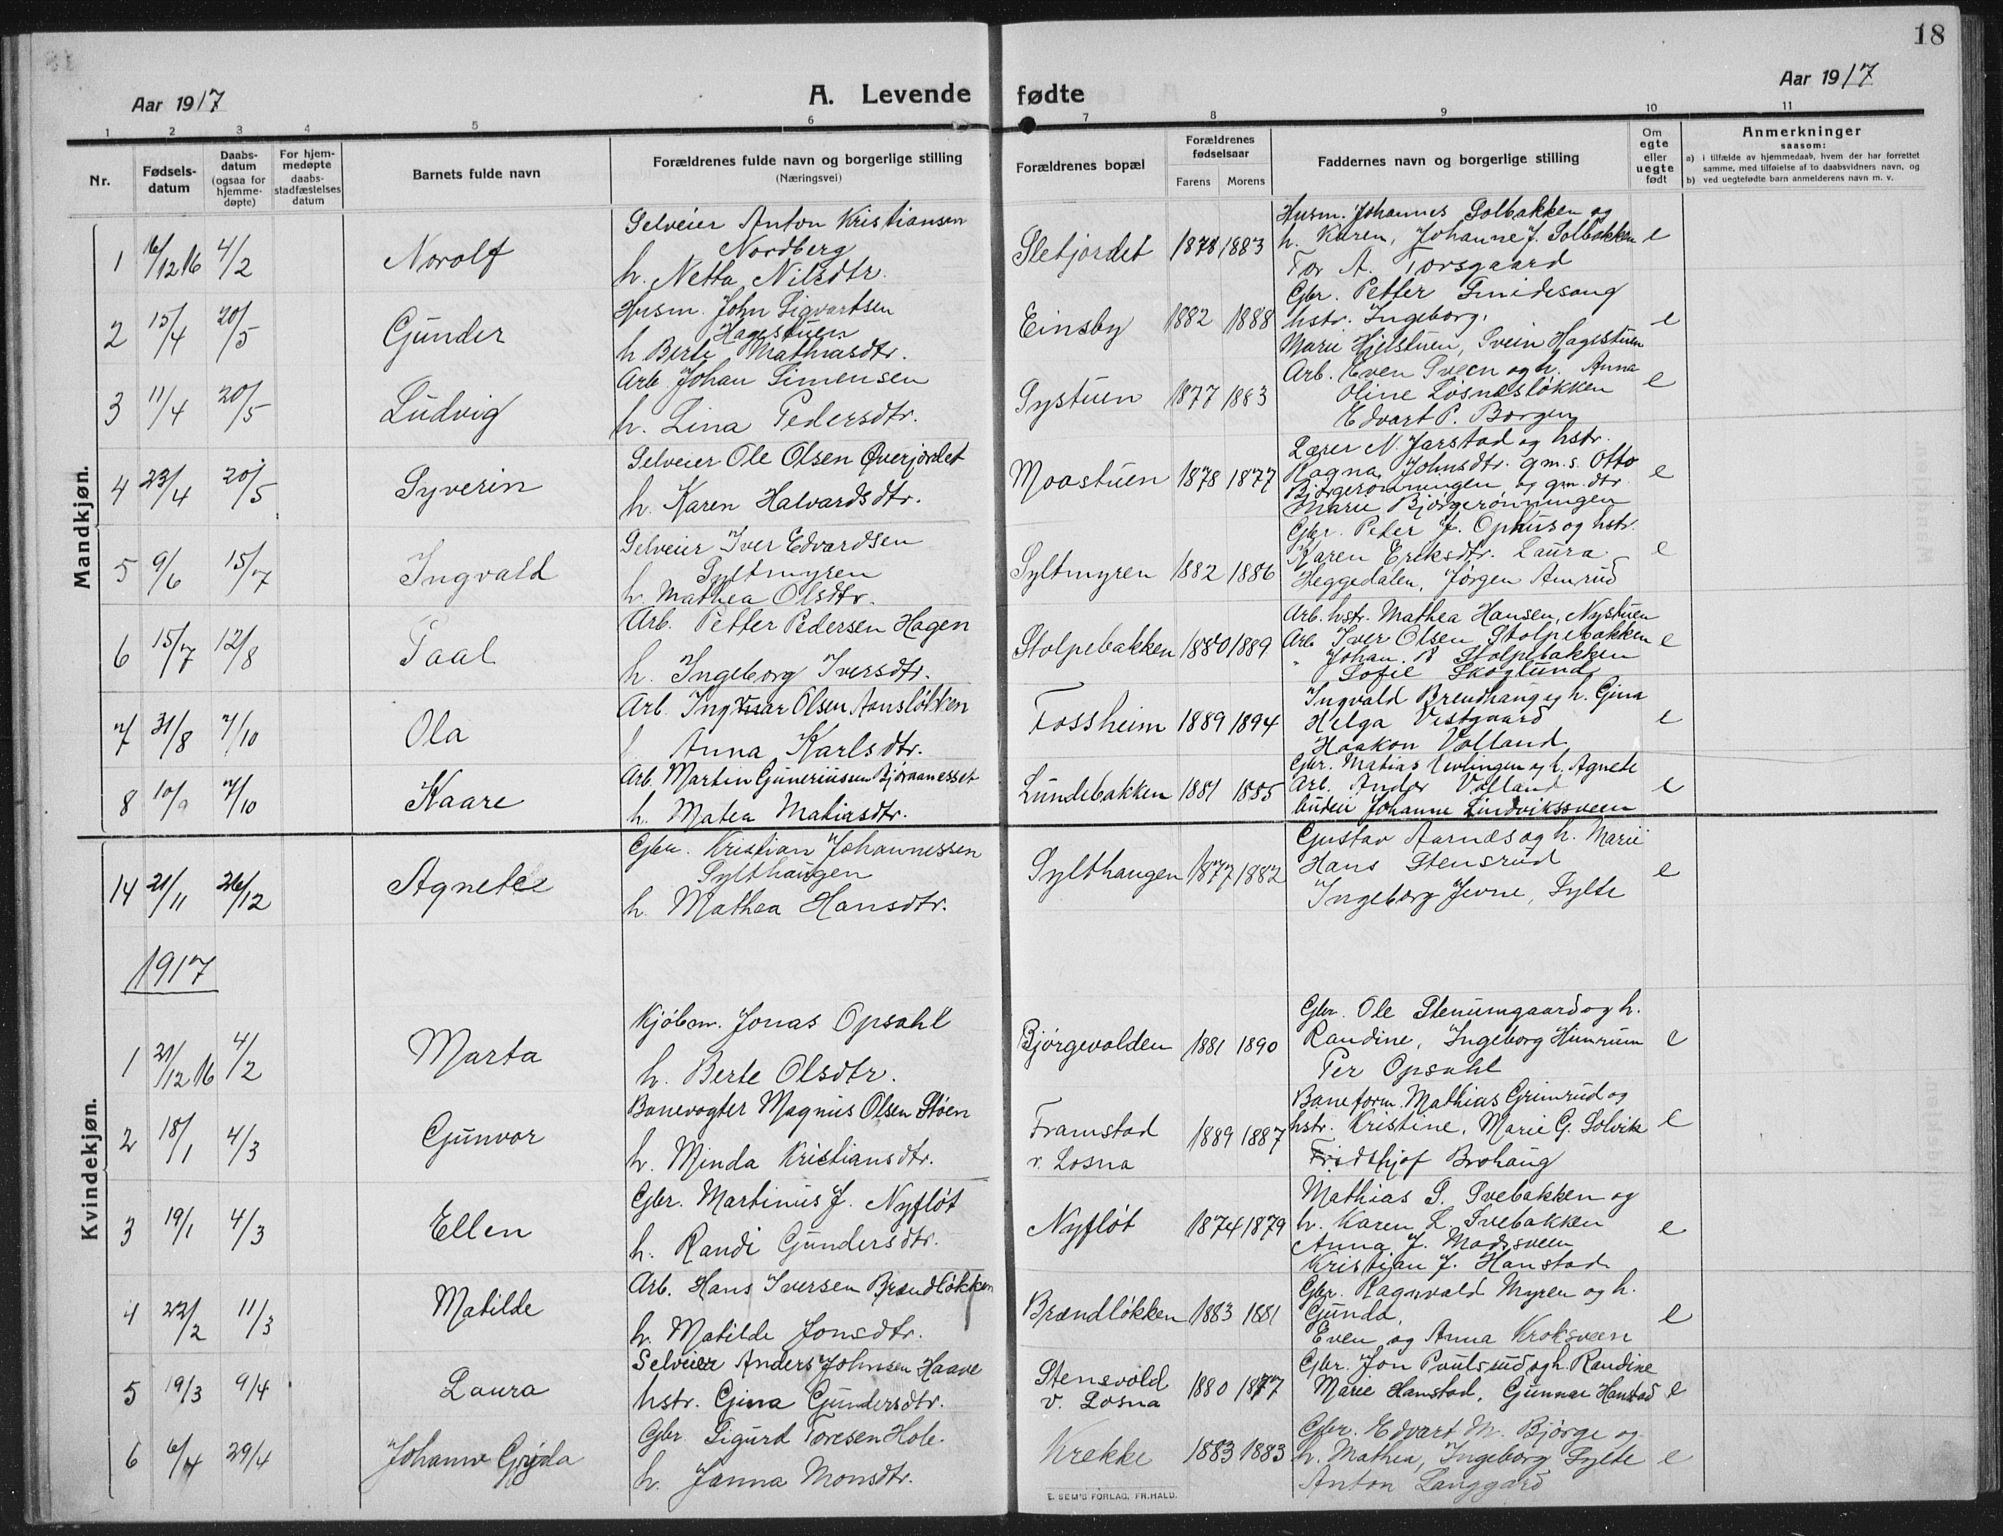 18
Aar 1917
A. Levende fødte
Aar 1917
1 2 3 4 5 6 7 8 9 10 11
Nr.
Fødsels-
datum
Daabs-
datum
(ogsaa for
hjemme-
døpte)
For hjem-
medøpte
daabs-
stadfæstelses
datum
Barnets fulde navn
Forældrenes fulde navn og borgerlige stilling
(Næringsvei)
Forældrenes bopæl
Forældrenes
fødselsaar
Farens Morens
Faddernes navn og borgerlige stilling
Om
egte
eller
uegte
født
Anmerkninger
saasom:
a) i tilfælde av hjemmedaab, hvem der har forrettet
samme, med tilføielse af to daabsvidners navn, og
b) ved uegtefødte barn anmelderens navn m. v.
Mandkjøn.
1 16/12 16 4/2 Norolf
Selveier Anton Kristiansen
Nordberg
h. Netta Nilsdtr.
Sletjordet 1878 1883
Husm. Johannes Solbakken og
h. Karen, Johanne J. Solbakken e
Tor A. Torsgaard
2 15/4 20/5 Gunder
Husm. John Sigvartsen
Hagestuen
h Berte Mathiasdtr.
Einsby 1882 1888
Gbr. Petter Smidesang
hstr. Ingeborg. e
Marie Hjelstuen, Svein Hagestuen
3 11/4 20/5 Ludvig
Arb. Johan Simensen
h. Lina Pedersdtr.
Systuen 1877 1883
Arb. Even Sveen og h. Anna e
Oline Losnesløkken
Edvart P. Borgen
4 23/4 20/5 Syverin
Selveier Ole Olsen Øverjordet
h. Karen Halvardsdtr.
Moastuen 1878 1877
Lærer N. Jarstad og hstr.
Ragna Johnsdtr. gm.s. Otto e
Bjørgerønningen og gm. dtr.
Marie Bjørgerønningen
5 9/6 15/7 Ingvald
Selveier Iver Edvardsen
Syltmyren
h. Mathea Olsdtr.
Syltmyren 1882 1886
Gbr. Peter J. Ophus og hstr.
Karen Eriksdtr. Laura e
Heggedalen, Jørgen Amrud
6 15/7 12/8 Paal
Arb. Petter Pedersen Hagen
h. Ingeborg Iversdtr.
Stolpebakken 1880 1889
Arb. hstr. Mathea Hansen, Nystuen
Arb. Iver Olsen Stolpebakken e
" Johan P Stolpebakken
Sofie Skoglund
7 31/8 7/10 Ola
Arb. Ingvar Olsen Aonsløkken
Anna Karlsdtr.
Fossheim 1889 1894
Ingvald Brendhaug og h. Gina
Helga Vestgaard e
Haakon Volland
8 10/9 7/10 Kaare
Arb. Martin Guneriussen Bjøraanesset
h. Matea Matiasdtr.
Lundebakken 1881 1885
Gbr. Matias og h. Agnete
Arb. Volland e
budeie Johanne Lindvikssveen
Kvindekjøn.
14 21/11 26/12 Agnete
Gbr. Kristian Johannessen
Sylthaugen
h. Mathea Hansdtr.
Sylthaugen 1877 1882
Gustav Aarnæs og h. Marie
Hans Stensrud e
Ingeborg Jevne, Sylte
1917
1 21/12 16 4/2 Marta
Kjøbm. Jonas Opsahl
h. Berte Olsdtr.
Bjørgevolden 1881 1890
Gbr. Ole Stenumgaard og h.
Randine, Ingeborg Hunrum e
Per Opsahl
2 18/1 4/3 Gunvor
Banevogter Magnus Olsen Støen
h. Minda Kristiansdtr.
Framstad
v. Losna
1889 1887
Baneform. Mathias Grimrud og
hstr. Kristine, Marie G. Solvik e
Fridthjof Brohaug
3 19/1 4/3 Ellen
Gbr. Martinus J. Nyfløt
h. Randi Gundersdtr.
Nyfløt 1874 1879
Mathias P. Svebakken og
h. Karen L. Svebakken e
Anna J. Madssveen
Kristian J. Hanstad
4 22/2 11/3 Matilde
Arb. Hans Iversen Brændløkken
h. Matilde Jonsdtr.
Brændløkken 1883 1881
Gbr. Ragnvald Myren og h.
Gunda, e
Even og Anna Kroksveen
5 19/3 9/4 Laura
Selveier Anders Johnsen Haave
hstr. Gina Gundersdtr.
Stensvold
v. Losna
1880 1877
Gbr. Jon Poulsrud og h. Randine
Marie Hanstad, Gunnar Hanstad e
6 6/4 29/4 Johanne Gyda
Gbr. Sigurd Toresen Hole
h. Janna Monsdtr.
Krekke 1883 1883
Gbr. Edvart M. Bjørge og
h. Mathea, Ingeborg Sylte e
Anton Langgard
E. SEM'S FORLAG, FR.HALD.